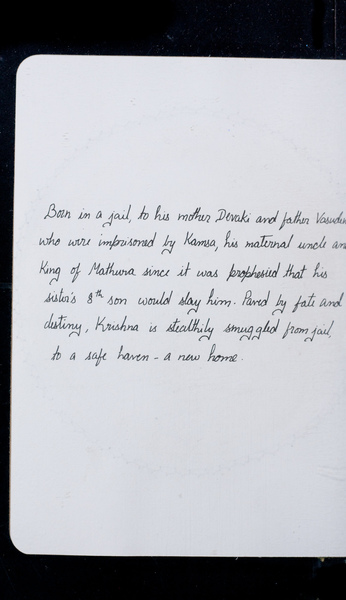 Born in a jail, to his mother Devaki and father
who were imprisoned by Kamsa, his maternal uncle
King of Mathura since it was prophesied that his
sister's 8th son would slay him. Paved by fate and
destiny, Krishna is stealthily smuggled from jail,
to a safe haven - a new home.